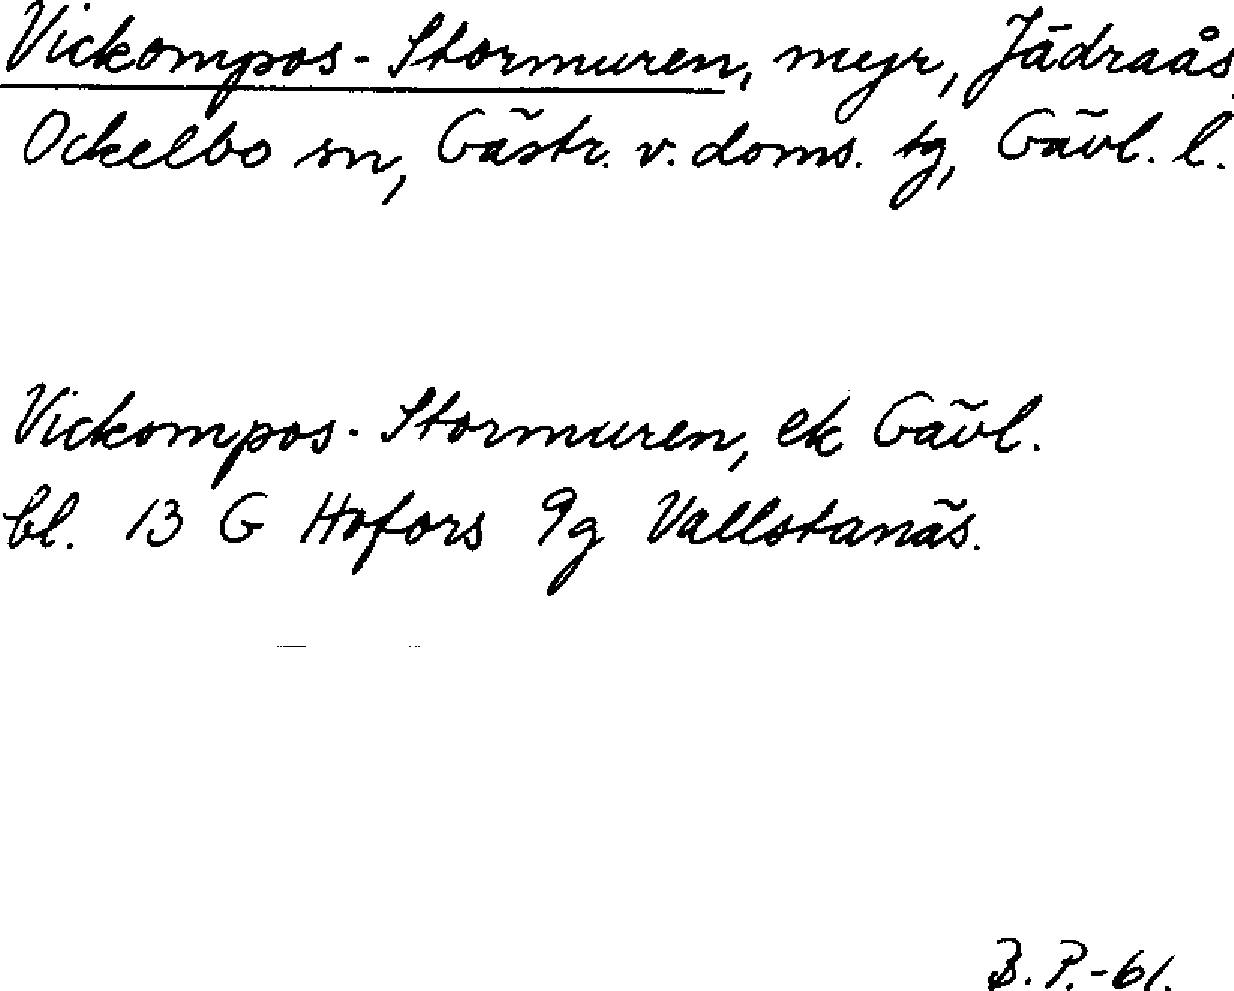 Vickompos-Stormuren, myr, Jädraås,
Ockelbo sn, Gästr. v. doms. tg, Gävl. l.
Vickompos-Stormuren, ek Gävl.
bl. 13 G Hofors 9g Vallstanäs.
B. P.-61.